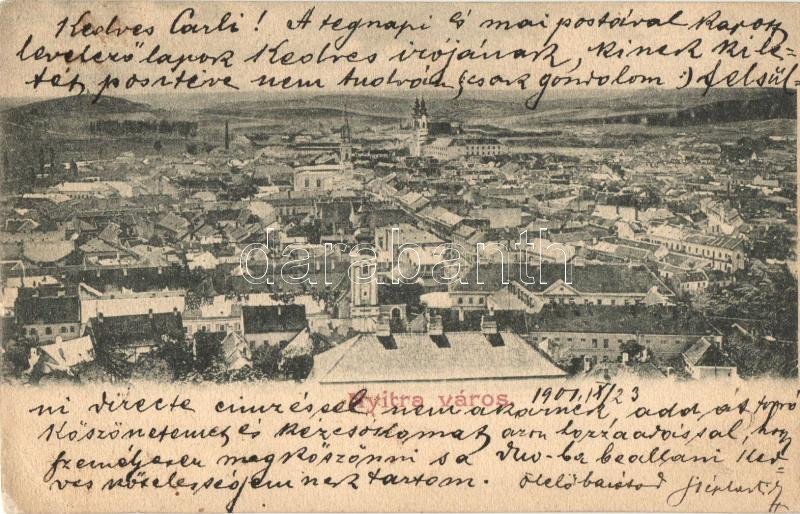 Kedves Carli! A tegnapi és mai postával kapott
levelezőlapok kedves irójának, kinek kilé-
tét positive nem tudván (csak gondolom :) felsül-
darabanth
Nyitra város.
1901. IX/23
ni directe cimzéssel nem akarnék, add át forró
köszönetemet és kézcsókomat azon hozzáadással, hogy
személyesen megköszönni s a duo-ba beállani ked-
ves kötelességemnek tartom.
ölelő barátod